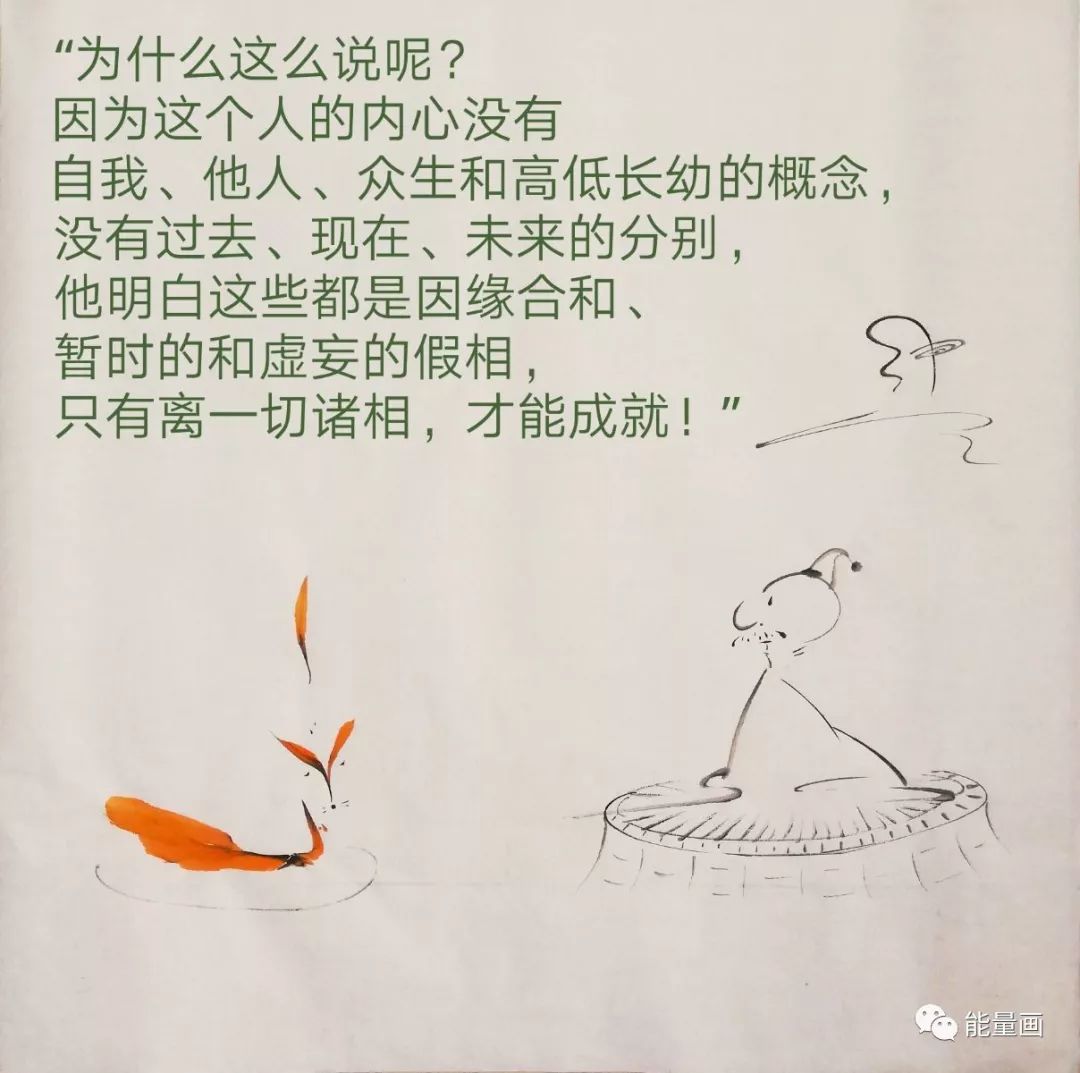 “为什么这么说呢？
因为这个人的内心没有
自我、他人、众生和高低长幼的概念，
没有过去、现在、未来的分别，
他明白这些都是因缘合和、
暂时的和虚妄的假相，
只有离一切诸相，才能成就！”
能量画